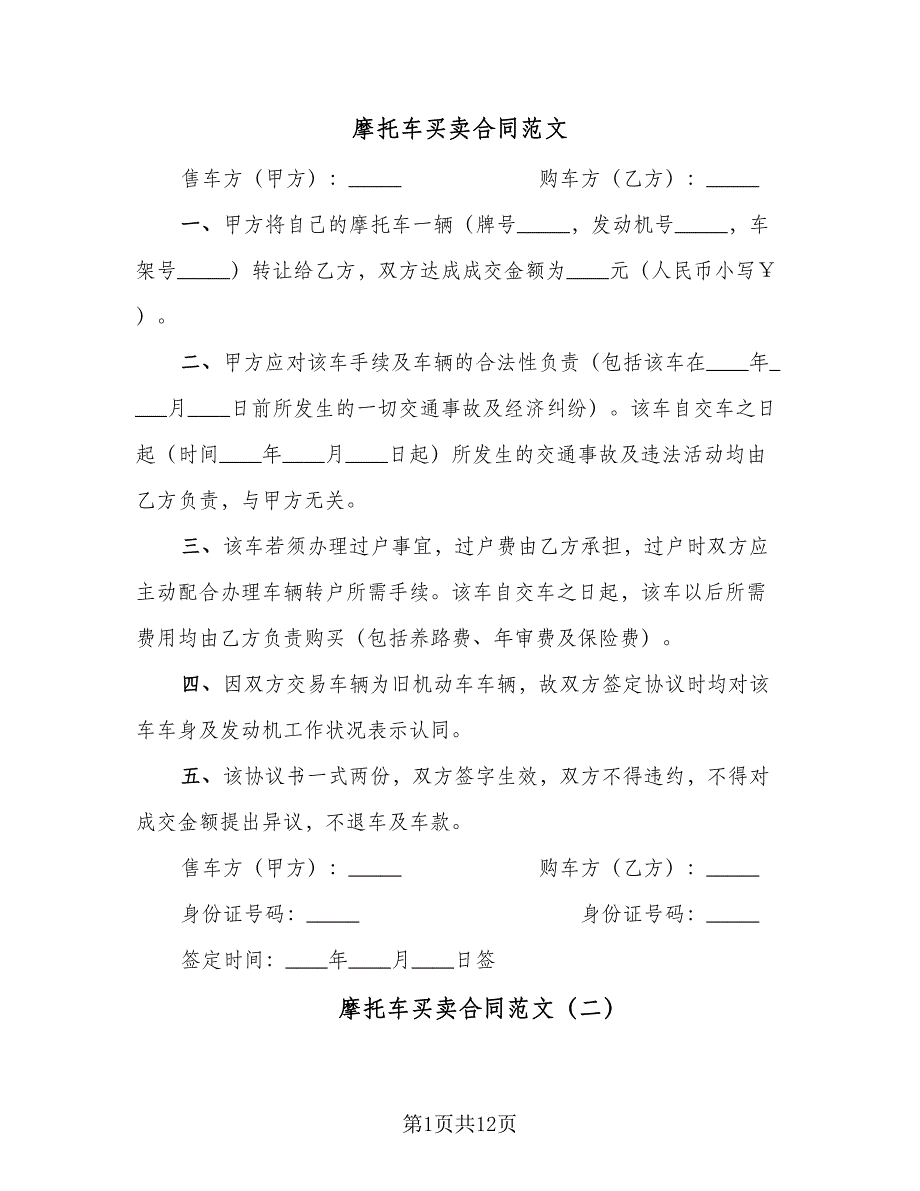 摩托车买卖合同范文
售车方（甲方）：_____ 购车方（乙方）：_____
一、甲方将自己的摩托车一辆（牌号_____，发动机号_____，车
架号_____）转让给乙方，双方达成成交金额为____元（人民币小写￥
）。
二、甲方应对该车手续及车辆的合法性负责（包括该车在____年_
___月____日前所发生的一切交通事故及经济纠纷）。该车自交车之日
起（时间____年____月____日起）所发生的交通事故及违法活动均由
乙方负责，与甲方无关。
三、该车若须办理过户事宜，过户费由乙方承担，过户时双方应
主动配合办理车辆转户所需手续。该车自交车之日起，该车以后所需
费用均由乙方负责购买（包括养路费、年审费及保险费）。
四、因双方交易车辆为旧机动车车辆，故双方签定协议时均对该
车车身及发动机工作状况表示认同。
五、该协议书一式两份，双方签字生效，双方不得违约，不得对
成交金额提出异议，不退车及车款。
售车方（甲方）：_____ 购车方（乙方）：_____
身份证号码：_____ 身份证号码：_____
签定时间：____年____月____日签
摩托车买卖合同范文（二）
第1页共12页